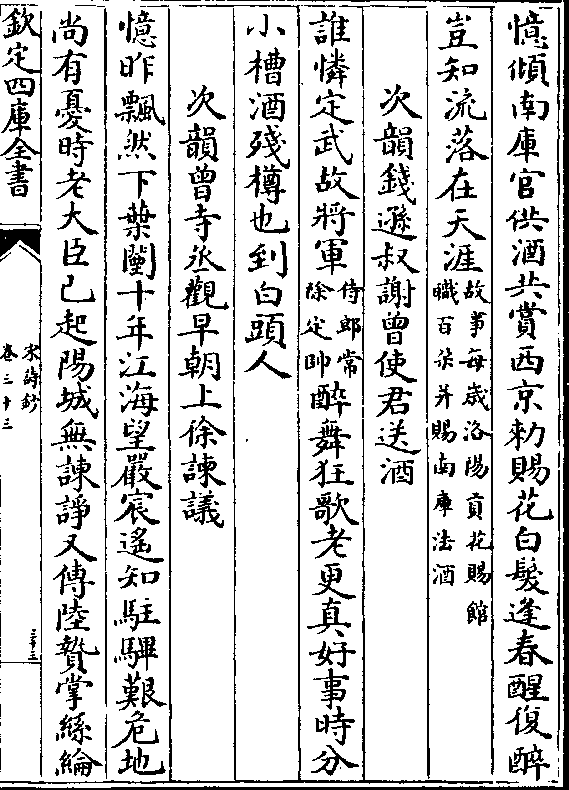 憶傾南庫官供酒共賞西京敕賜花白髮逢春醒復醉
豈知流落在天涯故事每歲洛陽貢花賜館職百朶并賜南庫法酒
次韻錢遜叔謝曾使君送酒
誰憐定武故將軍侍郎常除定帥醉舞狂歌老更真好事時分
小槽酒殘樽也到白頭人
次韻曾寺丞觀早朝上徐諫議
憶昨飄然下葉闉十年江海望嚴宸遙知駐驆艱危地
尚有憂時老大臣已起陽城無諫諍又傳陸贄掌絲綸
欽定四庫全書
宋詩鈔
卷三十三
三十三